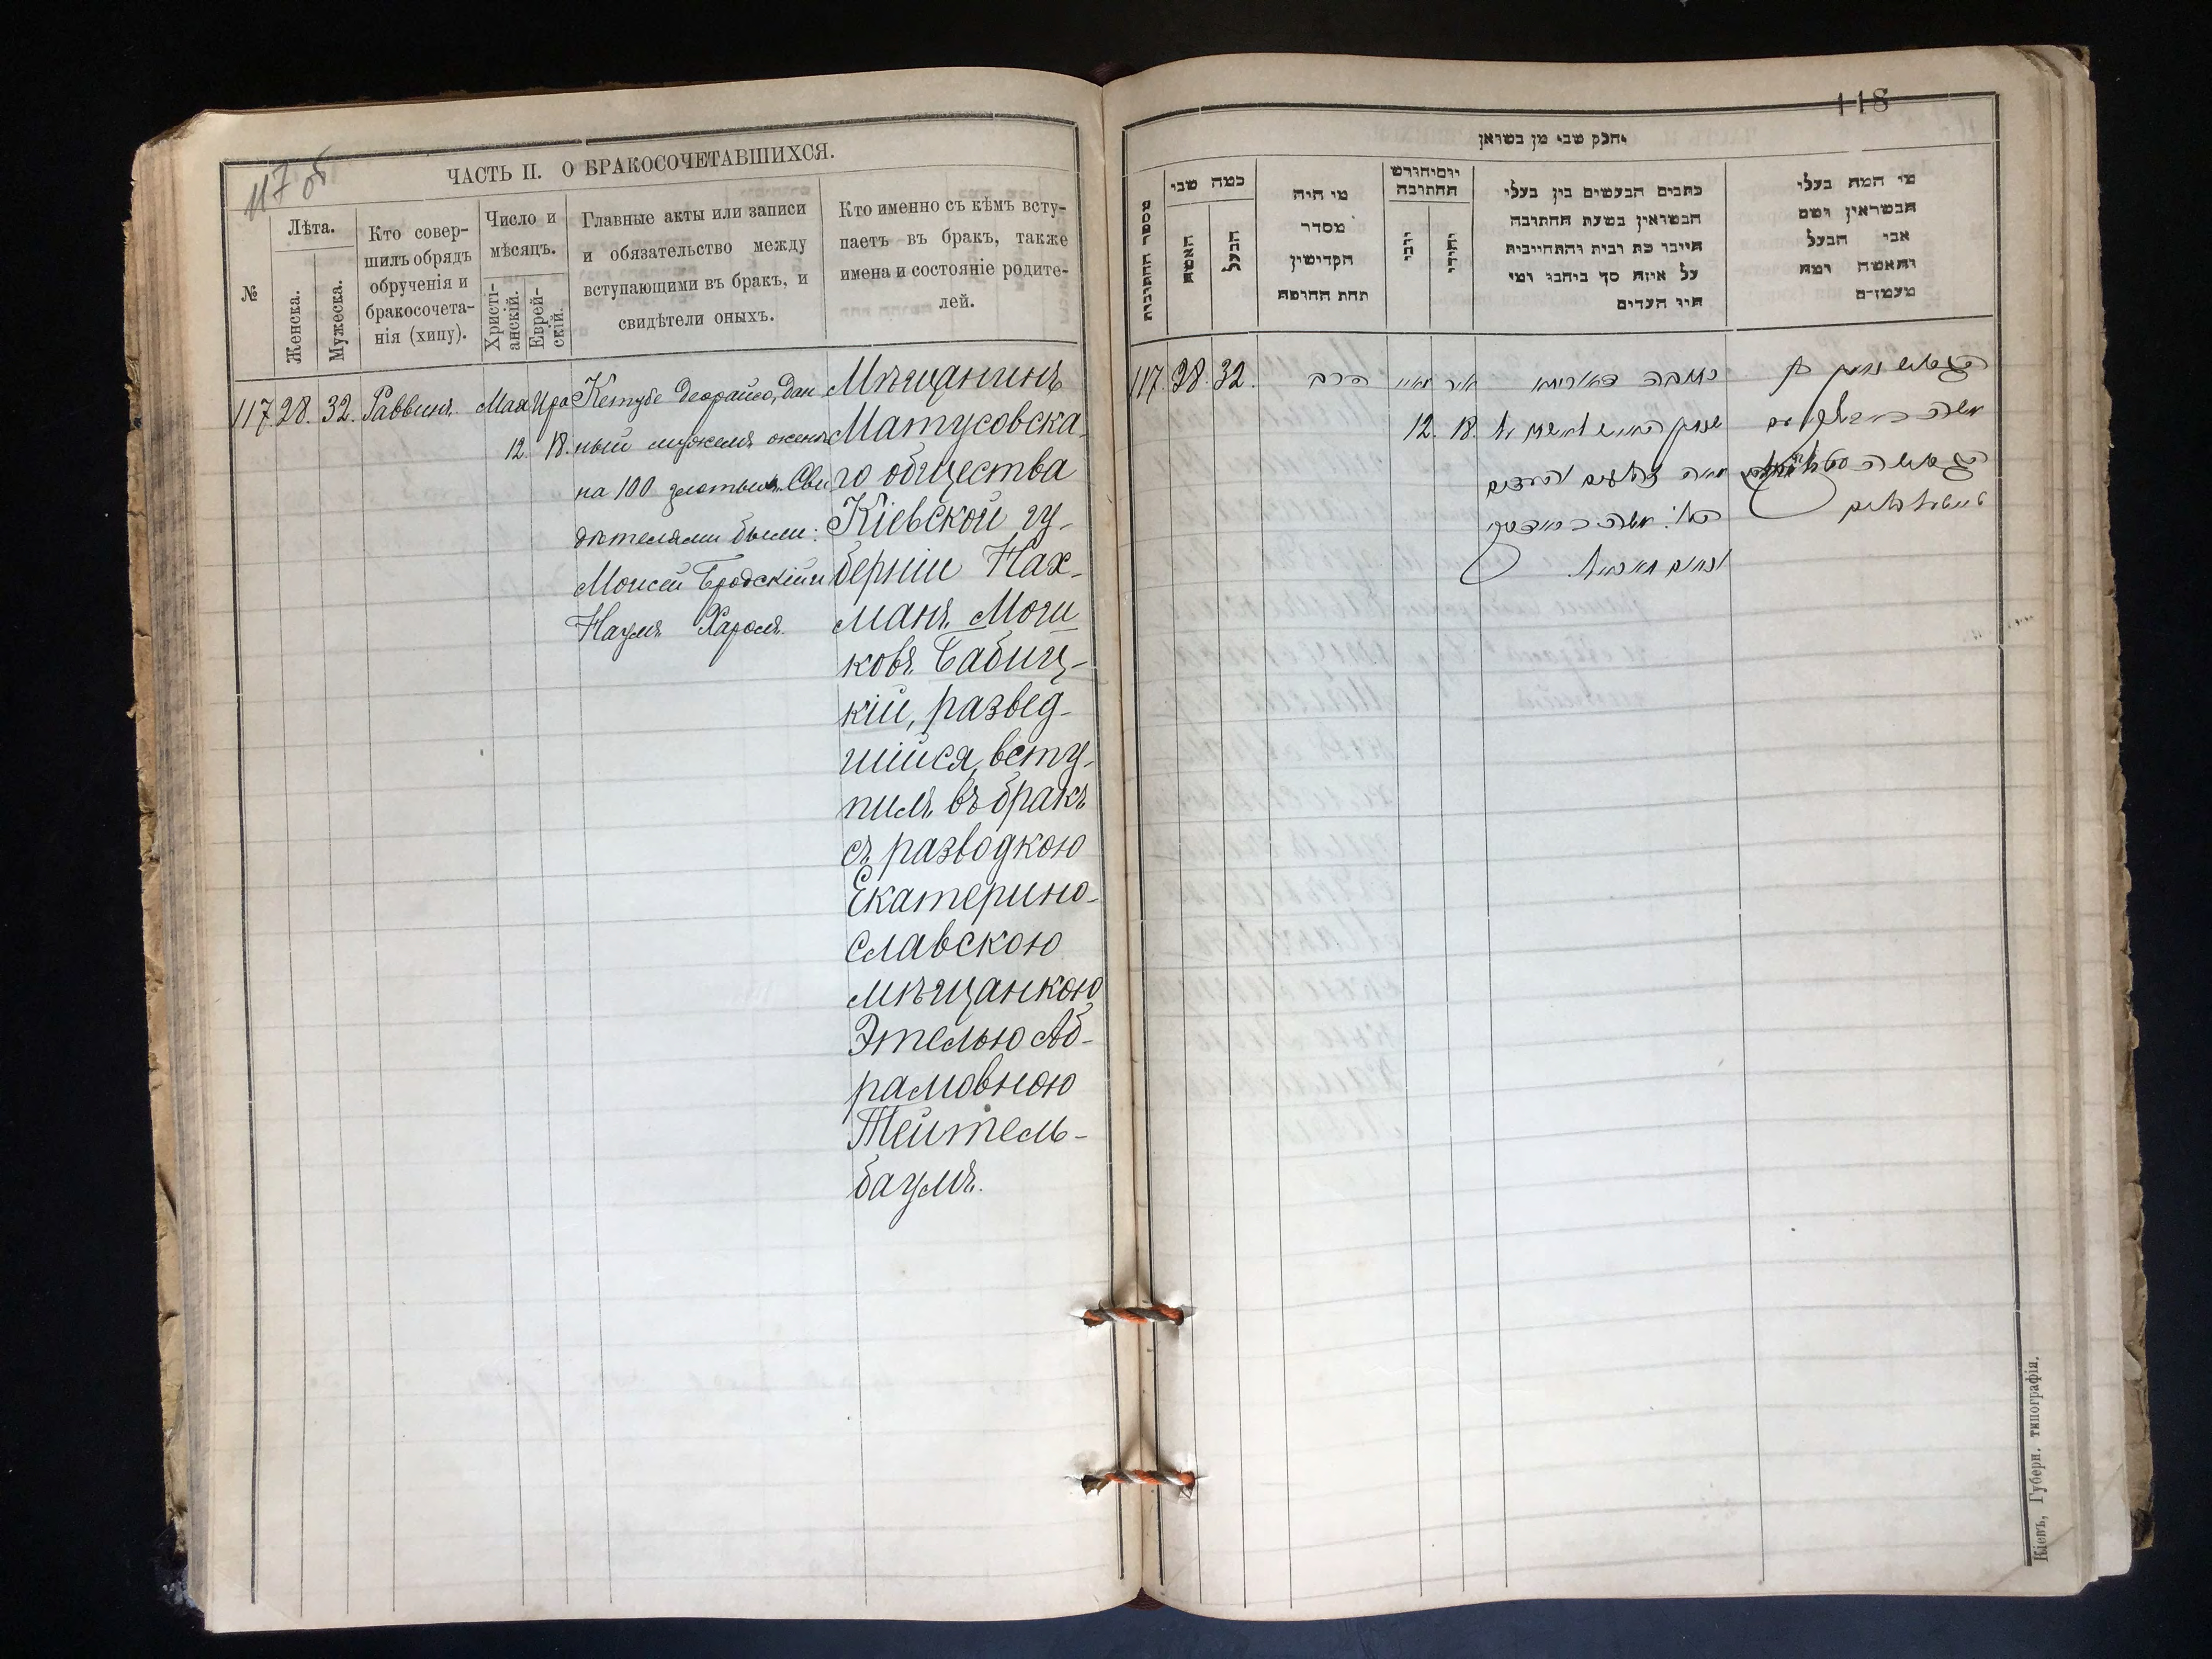 117 об
ЧАСТЬ II. О БРАКОСОЧЕТАВШИХСЯ.
№
Лѣта.
Женска.
Мужеска.
Кто совер-
шилъ обрядъ
обрученія и
бракосочета-
нія (хипу).
Число и
мѣсяцъ.
Христі-
анскій.
Еврей-
скій.
Главные акты или записи
и обязательство между
вступающими въ бракъ, и
свидѣтели оныхъ.
Кто именно съ кѣмъ всту-
паетъ въ бракъ, также
имена и состояніе родите-
лей.
117 28. 32. Раввинъ. Мая Іяра
12. 18.
Кетубе Деорайсо, дан
ный мужемъ женѣ
на 100 злотыхъ. Сви
дѣтелями были:
Моисей Бродскій и
Наумъ Кароль.
Мѣщанинъ
Матусовска-
го общества
Кіевской гу-
берніи Нах-
манъ Моти
ковъ Бабиц-
кій, развед-
шійся, всту-
пилъ въ бракъ
съ разводкою
Екатерино-
славскою
мѣщанкою
Этелью Аб-
рамовною
Тейтель-
баумъ.
118
וחלק שני מן נשואין
מספר החתונות
כמה שני
האשה
הבעל
מי היה
מסדר
הקדושין
תחת החופה
יום וחודש
החתונה
נוצרי
יהודי
כתבים הנעשים בין בעלי
הנשואין בשעת החתונה
היינו כת ובית והתחייבות
על איזה סך ביחנו ומי
היו העדים
מי המה בעלי
הנשואין ושם
אבי הבעל
והאשה ומה
מעמדם
117. 28. 32.
הרב
מאיי
12.
איר
18.
כתובה דאורייתא
מאה זהובים והעדים
הי': משה בראדסקי
ונחום
טייטעלבוים
Кіевъ, Губерн. типографія.